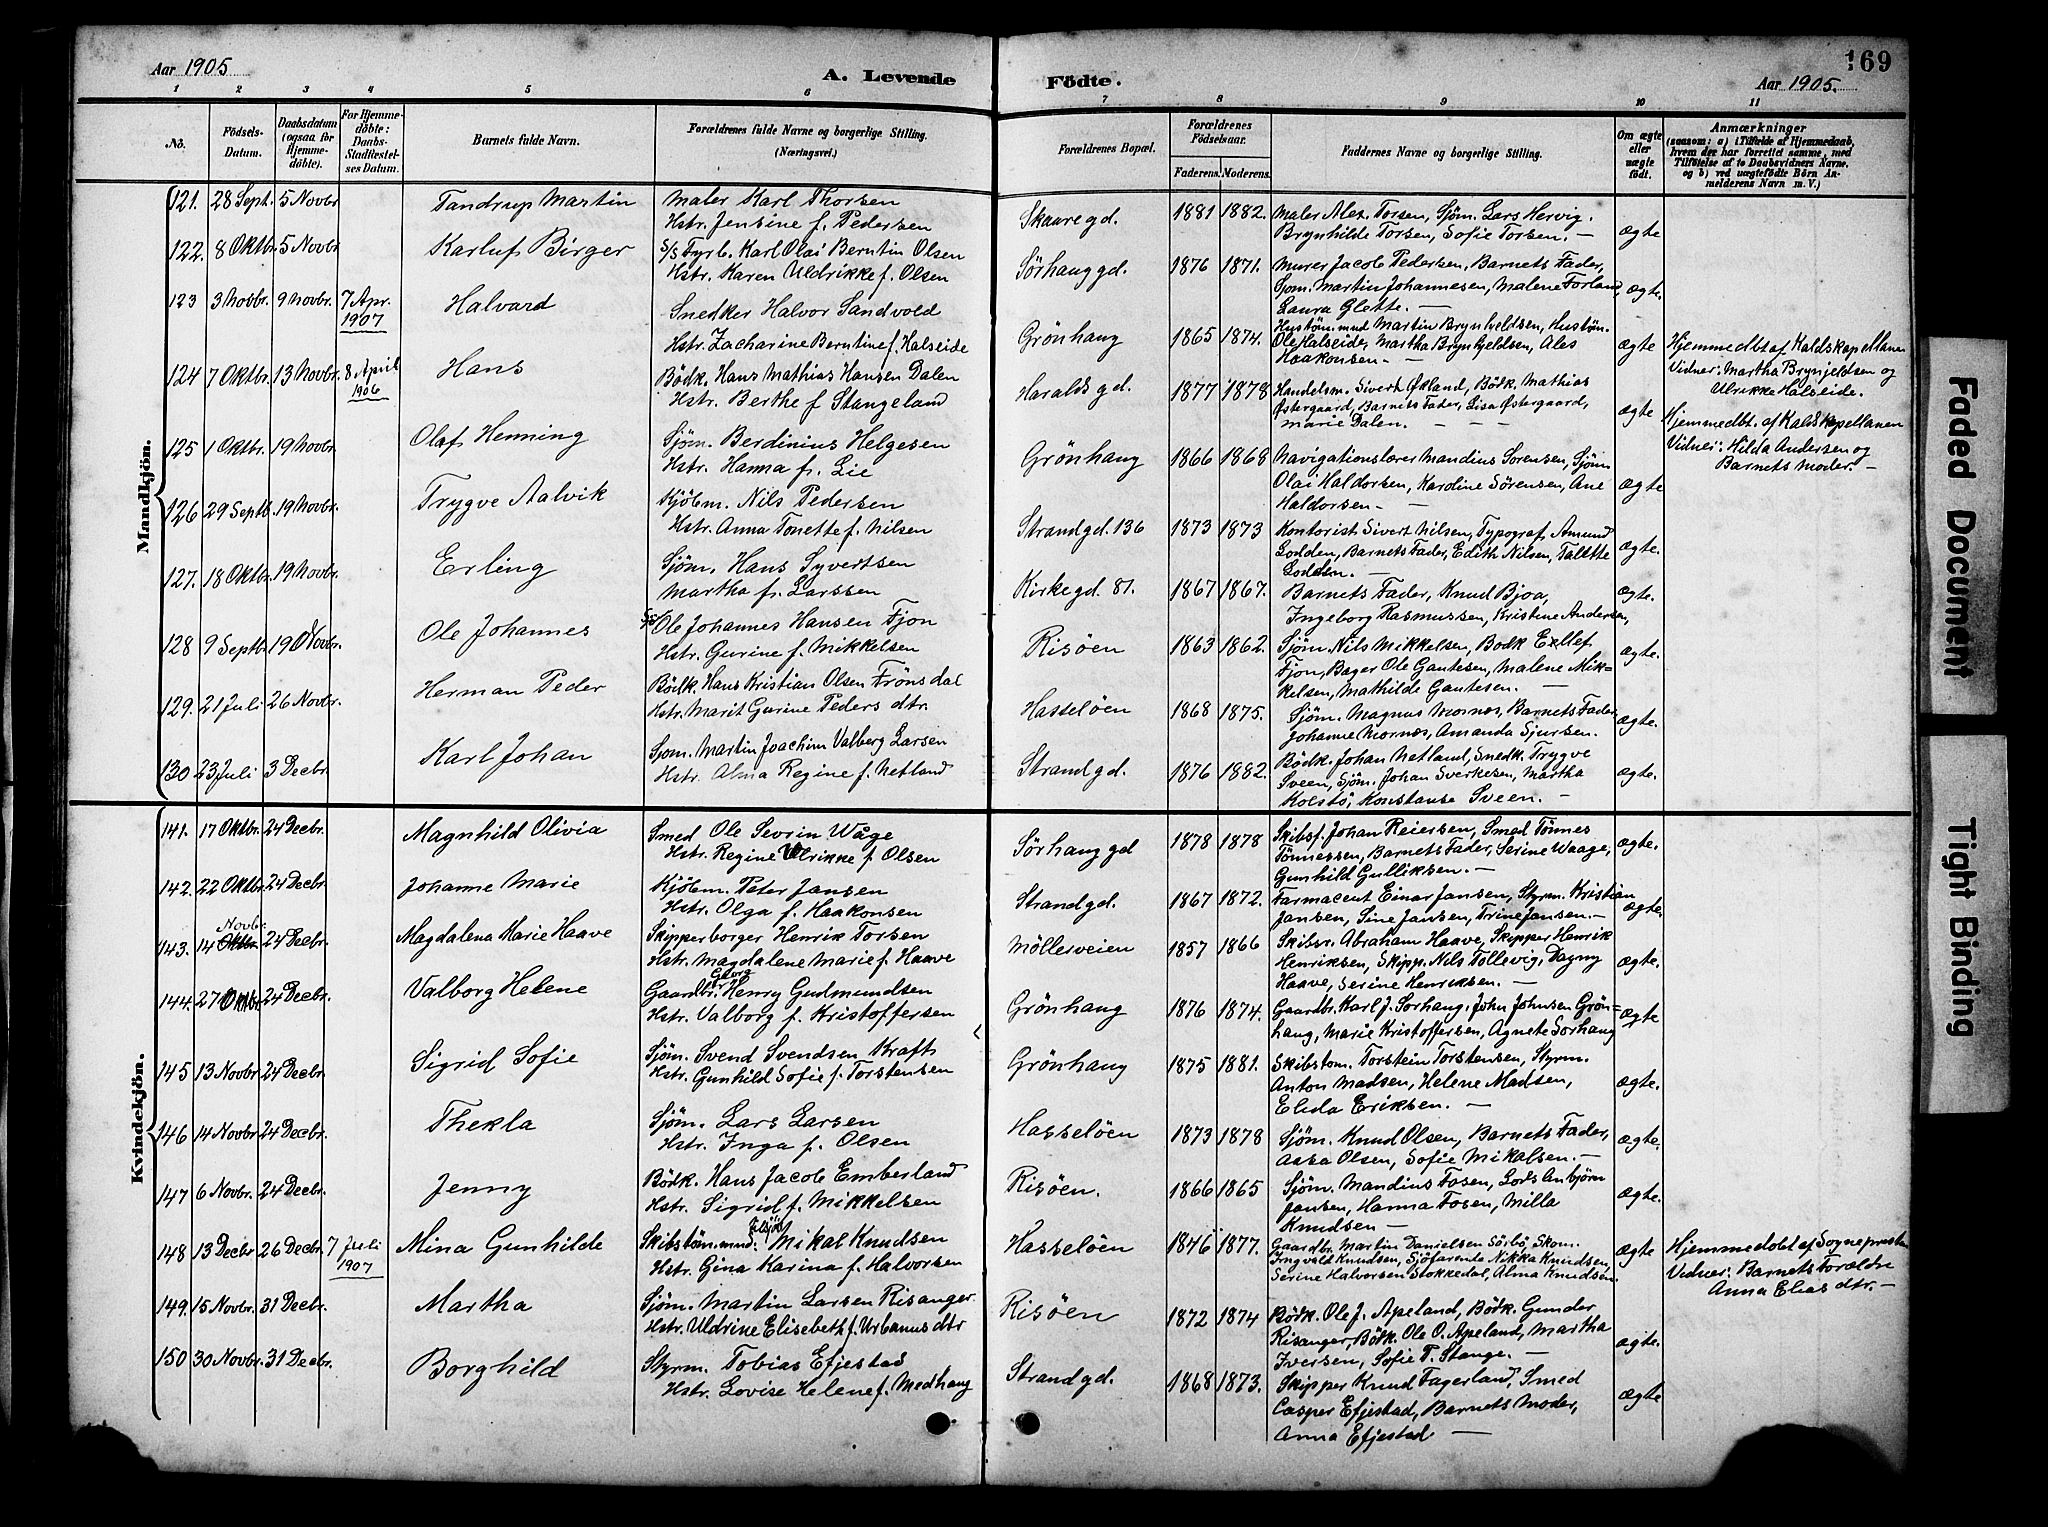 Aar 1905
A. Levende
Födte.
Aar 1905.
169
1 2 3 4 5 6 7 8 9 10 11
No.
Födsels-Datum.
Daabsdatum (ogsaa for Hjemmedöbte).
For Hjemmedöbte: Daabs-Stadfæstelses Datum.
Barnets fulde Navn.
Forældrenes fulde Navne og borgerlige Stilling.
(Næringsvei.)
Forældrenes Bopæl.
Forældrenes Födselsaar.
Faderens. Moderens.
Faddernes Navne og borgerlige Stilling.
Om ægte eller uægte födt.
Anmærkninger
(saasom: a) i Tilfælde af Hjemmedaab, hvem der har forrettet samme, med Tilföielse af to Daabsvidners Navne. og b) ved uægtefödte Börn Anmelderens Navn m. V.)
Mandkjön.
121. 28 Sept. 5 Novbr Tandrup Martin Maler Karl Thorsen
Hstr. Jensine f. Pedersen
Skaaregd. 1881 1882. Maler Alex. Torsen, Sjöm. Lars Hervig.
Brynhilde Torsen, Sofie Torsen. — ægte
122. 8 Oktbr. 5 Novbr. Karluf Birger S/S Fyrb. Karl Olai Berntin Olsen
Hstr. Karen Uldrikke f. Olsen
Sörhauggd. 1876 1871. Murer Jacob Pedersen, Barnets Fader,
Sjöm. Martin Johannesen, Malene Förland, ægte.
Laura Glette. —
123 3 Novbr. 9 Novbr. 7 Apr. 1907 Halvard Snedker Halvor Sandvold
Hstr. Zacharine Berntine f. Halseide
Grönhaug 1865 1874. Hustöm.mnd Martin Brynhjeldsen, Hustöm.
Ole Halseide, Martha Brynhjeldsen, Ales
Haakonsen. — ægte
Hjemmedbt af Kaldskapellanen
Vidner: Martha Brynjeldsen og
Ulrikke Halseide.
124 7 Oktbr. 13 Novbr. 8 April 1906 Hans Bödk. Hans Mathias Hansen Dalen
Hstr. Berthe f Stangeland
Haraldsgd. 1877 1878 Handelsm. Sivert Økland, Bödk. Mathias
Østergaard, Barnets Fader, Lisa Østergaard,
Marie Dalen. — — — ægte
Hjemmedbt. af Kaldskapellanen
Vidner: Hilda Andersen og
Barnets Moder. —
125 1 Oktbr. 19 Novbr. Olaf Henning Sjöm. Berdinius Helgesen
Hstr. Hanna f. Lie
Grönhaug 1866 1868 Navigationslærer Mandius Sörensen, Sjöm.
Olai Haldorsen, Kardine Sörensen, Ane
Haldorsen. — ægte
126 29 Septb. 19 Novbr. Trygve Aalvik Kjöbm. Nils Pedersen
Hstr. Anna Tonette f. Nilsen
Strandgd. 136 1873 1873 Kontorist Sivert Nilsen, Typograf Amund
Lodden, Barnets Fader, Edith Nilsen, Talette
Lodden. — ægte.
127. 18 Oktbr. 19 Novbr. Erling Sjöm. Hans Syvertsen
Martha f. Larssen
Kirkegd. 81. 1867 1867. Barnets Fader, Knud Bjoa,
Ingeborg Rasmussen, Kristine Andersen, ægte.
128 9 Septb. 19 Novbr. Ole Johannes Ole Johannes Hansen Fjon
Hstr. Gurine f. Mikkelsen
Risöen 1863 1862. Sjöm. Nils Mikkelsen, Bodk Ellef
Fjon, Bager Ole Gautesen, Malene Mik-
kelsen, Mathilde Gautesen. — ægte.
129. 21 Juli 26 Novbr. Herman Peder Bödk. Hans Kristian Olsen Frönsdal
Hstr. Marit Gurine Peders dtr.
Hasselöen 1868 1875. Sjöm. Magnus Mornæs, Barnets Fader,
Johanne Mornæs, Amanda Sjursen. ægte.
130 23 Juli 3 Decbr. Karl Johan Sjom. Martin Joachim Valberg Larsen
Hstr. Alma Regine f. Netland
Strandgd. 1876 1882. Bödk. Johan Netland, Snedk. Trygve
Sveen, Sjöm. Johan Sverkesen, Martha
Kolstö, Konstanse Sveen. — ægte.
Kvindekjön.
141. 17 Oktbr. 24 Decbr. Magnhild Olivia Smed Ole Sevrin Waage
Hstr. Regine Ulrikke f. Olsen
Sörhauggd 1878 1878 Skibsf. Johan Reiersen, Smed Tönnes
Tönnessen, Barnets Fader, Serine Waage,
Gunhild Gulliksen. — ægte.
142. 22 Oktbr. 24 Decbr. Johanne Marie Kjöbm. Peter Jansen
Hstr. Olga f. Haakonsen
Strandgd. 1867 1872. Farmaceut Einar Jansen, Styrm. Kristian
Jansen, Sine Jansen, Trine Jansen. — ægte.
143. 14 Novbr. Oktbr. 24 Decbr. Magdalena Marie Haave Skipperborger Henrik Torsen
Hstr. Magdalene Marie f. Haave
Möllerveien 1857 1866 Skibsr. Abraham Haave, Skipper Henrik
Henriksen, Skipp. Nils Tollevig, Dagny
Haave, Serine Henriksen. — ægte.
144. 27 Oktbr. 24 Decbr. Valborg Helene Gaardbr. Georg Henry Gudmundsen
Hstr. Valborg f. Kristoffersen
Grönhaug 1876 1874. Gaardbr. Karl J. Sorhaug, John Johnsen Grön-
haug, Marie Kristoffersen, Agnete Sorhaug ægte
145 13 Novbr 24 Decbr. Sigrid Sofie Sjöm. Svend Svendsen Kraft
Hstr. Gunhild Sofie f. Torstensen
Grönhaug 1875 1881. Skibstöm. Torstein Torstensen, Styrm.
Anton Madsen, Helene Madsen,
Elida Eriksen. — ægte.
146 14 Novbr 24 Decbr. Thekla Sjöm. Lars Larsen
Hstr. Inga f. Olsen
Hasselöen 1873 1878 Sjöm. Knud Olsen, Barnets Fader,
Assa Olsen, Sofie Mikalsen. — ægte.
147 6 Novbr. 24 Decbr. Jenny Bödk. Hans Jacob Emberland
Hstr. Sigrid f. Mikkelsen
Risöen. 1866 1865 Sjöm. Mandius Fosen, Lods Anbjörn
Jansen, Hanna Fosen, Milla
Knudsen — ægte.
148 13 Decbr 26 Decbr. 7 Juli 1907 Mina Gunhilde Skibstöm.mnd. Mikal Knudsen
Hstr. Gina Karina f. Halvorsen
Hasselöen 1846 1877. Gaardbr. Martin Danielsen Sörbö, Skom.
Ingvald Knudsen, Sjöfarende Nikka Knudsen,
Serine Halvorsen Stokkedal, Alma Knudsen. ægte
Hjemmedobt af Sognepresten
Vidner: Barnets Forældre
Anna Elias dtr. —
149. 15 Novbr. 31 Decbr. Martha Sjöm. Martin Larsen Risanger
Hstr. Uldrine Elisebeth f. Urbanus dtr
Risöen 1872 1874 Bödk. Ole J. Apeland, Bödk. Gunder
Risanger, Bödk. Ole O. Apeland, Martha
Iversen, Sofie T. Stange. — ægte.
150 30 Novbr. 31 Decbr. Borghild Styrm. Tobias Efjestad
Hstr. Lovise Helene f. Medhaug
Strandgd. 1868 1873. Skipper Knud Fagerland, Smed
Casper Efjestad, Barnets Moder,
Anna Efjestad — ægte
Faded Document
Tight Binding